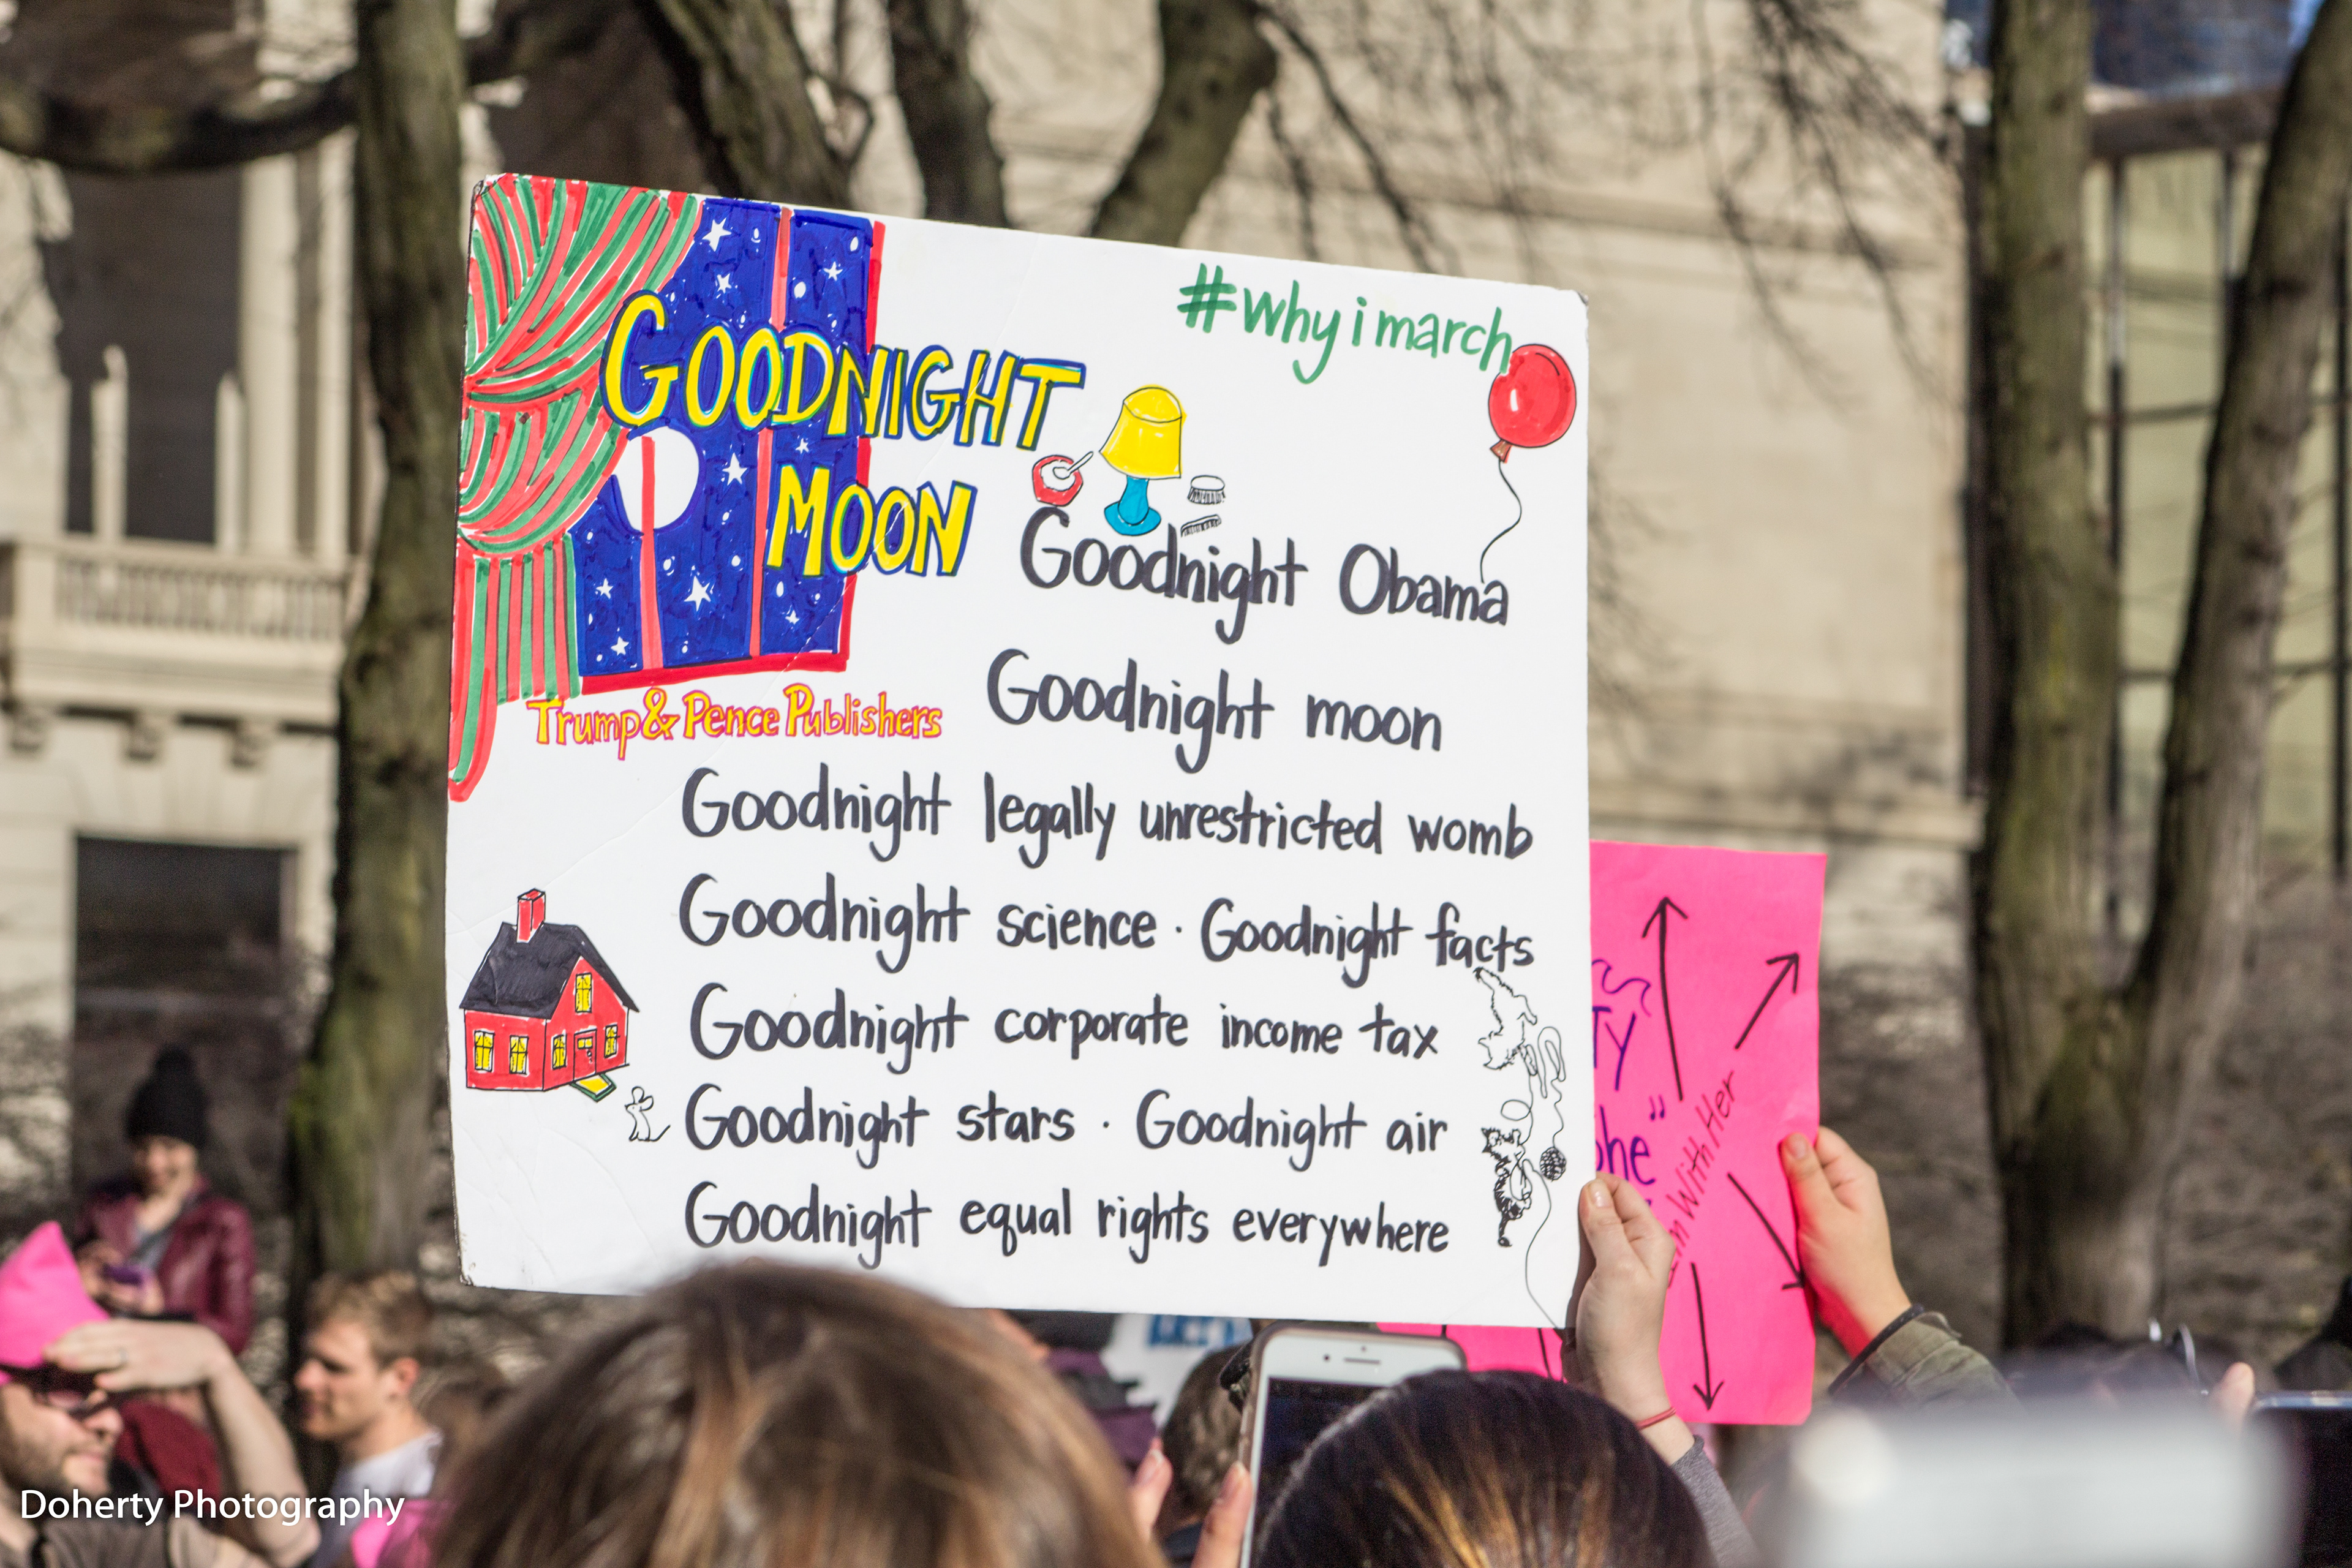 #why i march
GOODNIGHT
MOON
Goodnight Obama
Goodnight moon
Trump & Pence Publishers
Goodnight legally unrestricted womb
Goodnight science · Goodnight facts
Goodnight corporate income tax
Goodnight stars · Goodnight air
Goodnight equal rights everywhere
With Her
Doherty Photography